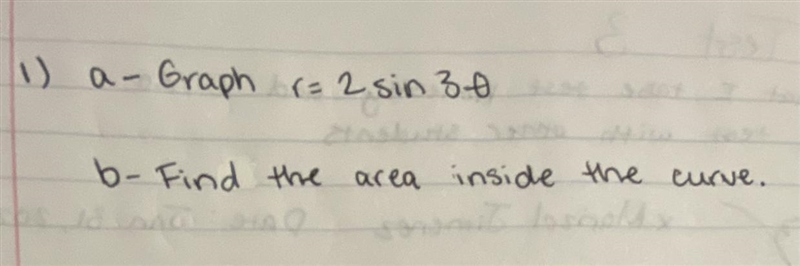 1) a- Graph r= 2 sin 3θ
b- Find the area inside the curve.